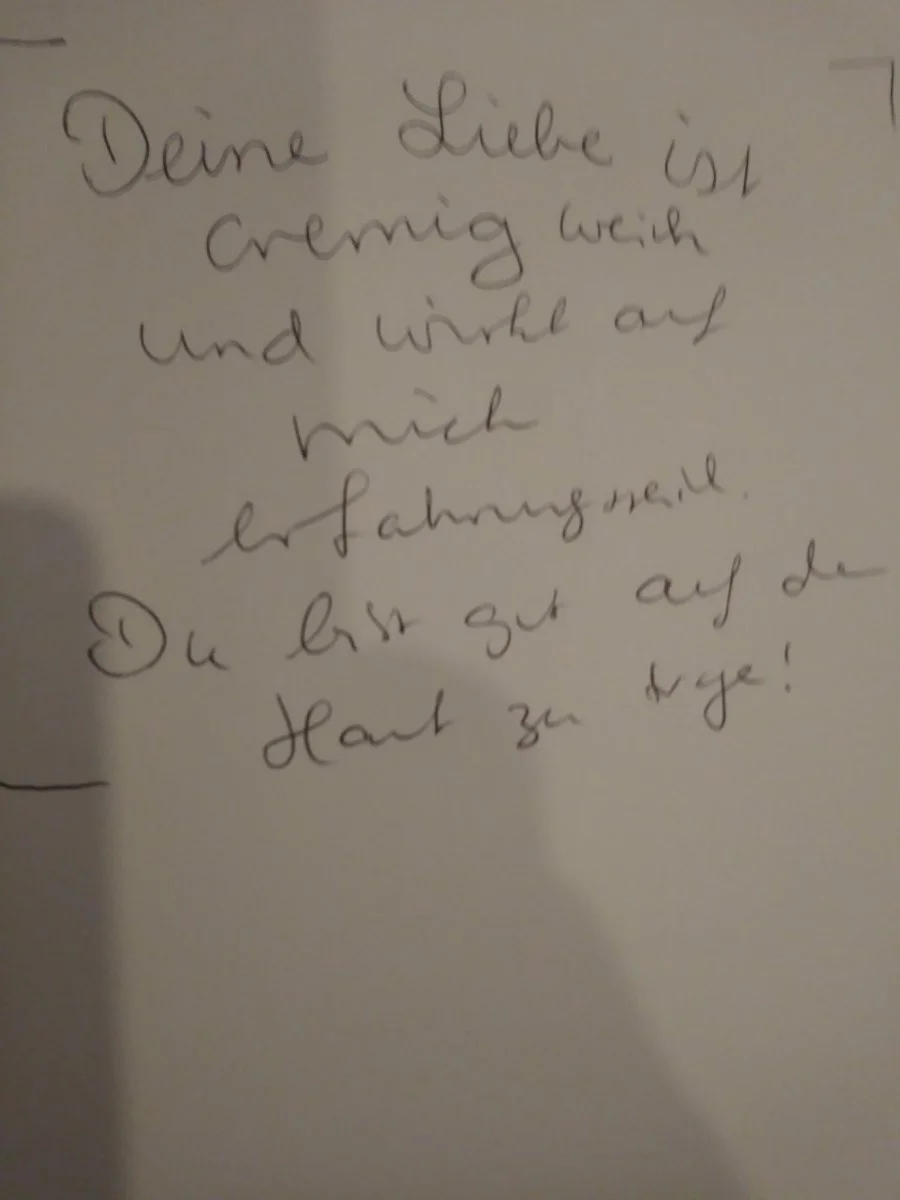 Deine Liebe ist
cremig weich
und wirkt auf
mich
Du bist gut auf der
Haut zu trage!